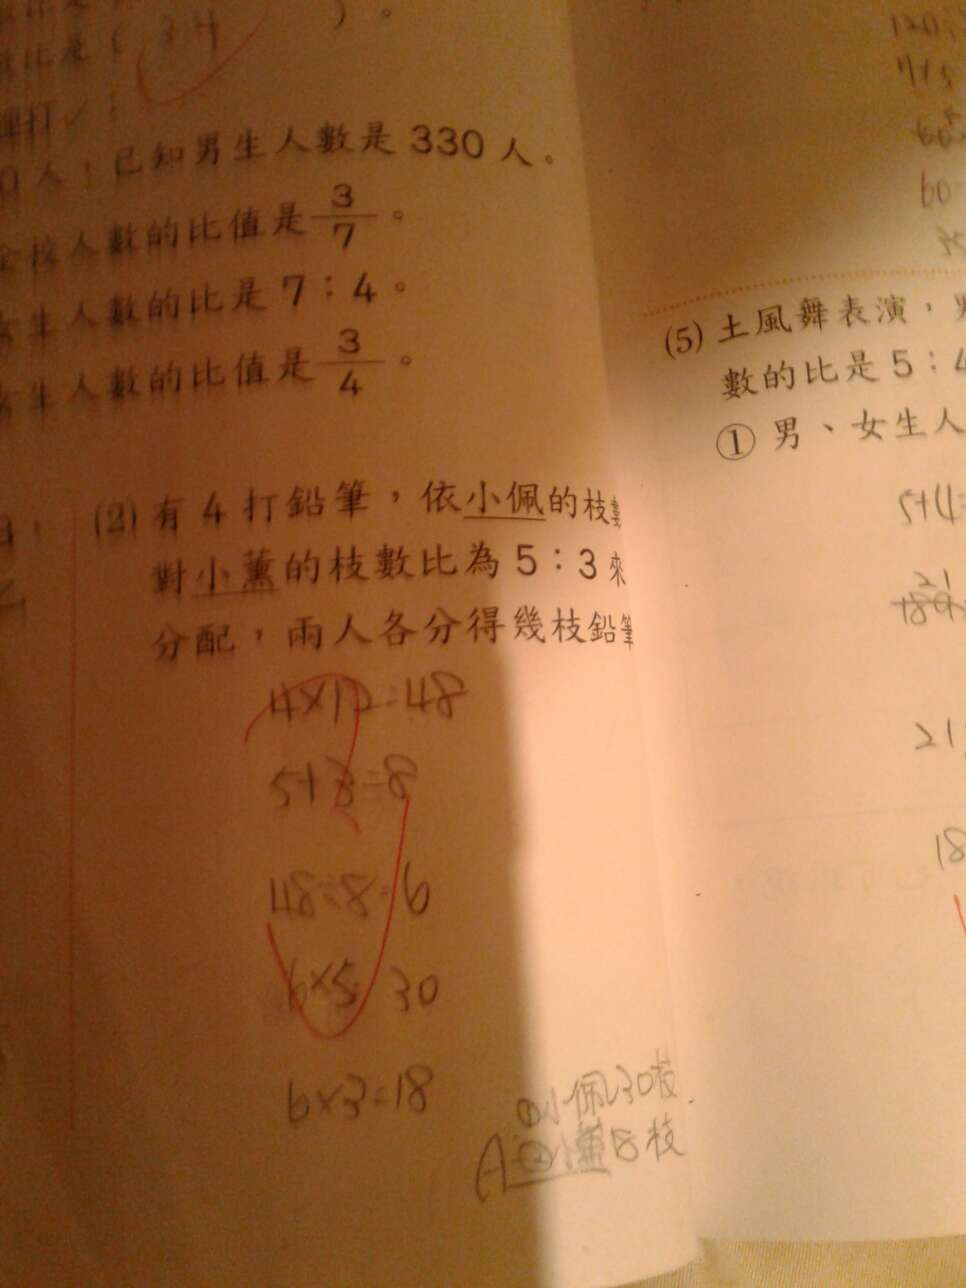 比是( 3:4 )。
0人,已知男生人數是330人。
全校人數的比值是3/7。
女生人數的比是7:4。
女生人數的比值是3/4。
(2)有4打鉛筆,依小佩的枝數
對小薰的枝數比為5:3來
分配,兩人各分得幾枝鉛筆
4×12=48
5+3=8
48÷8=6
6×5 30
6×3=18
①小佩30枝
A ②小薰18枝
120
60
60
(5)土風舞表演,男
數的比是5:4
①男、女生人
5+4=
21
21
18